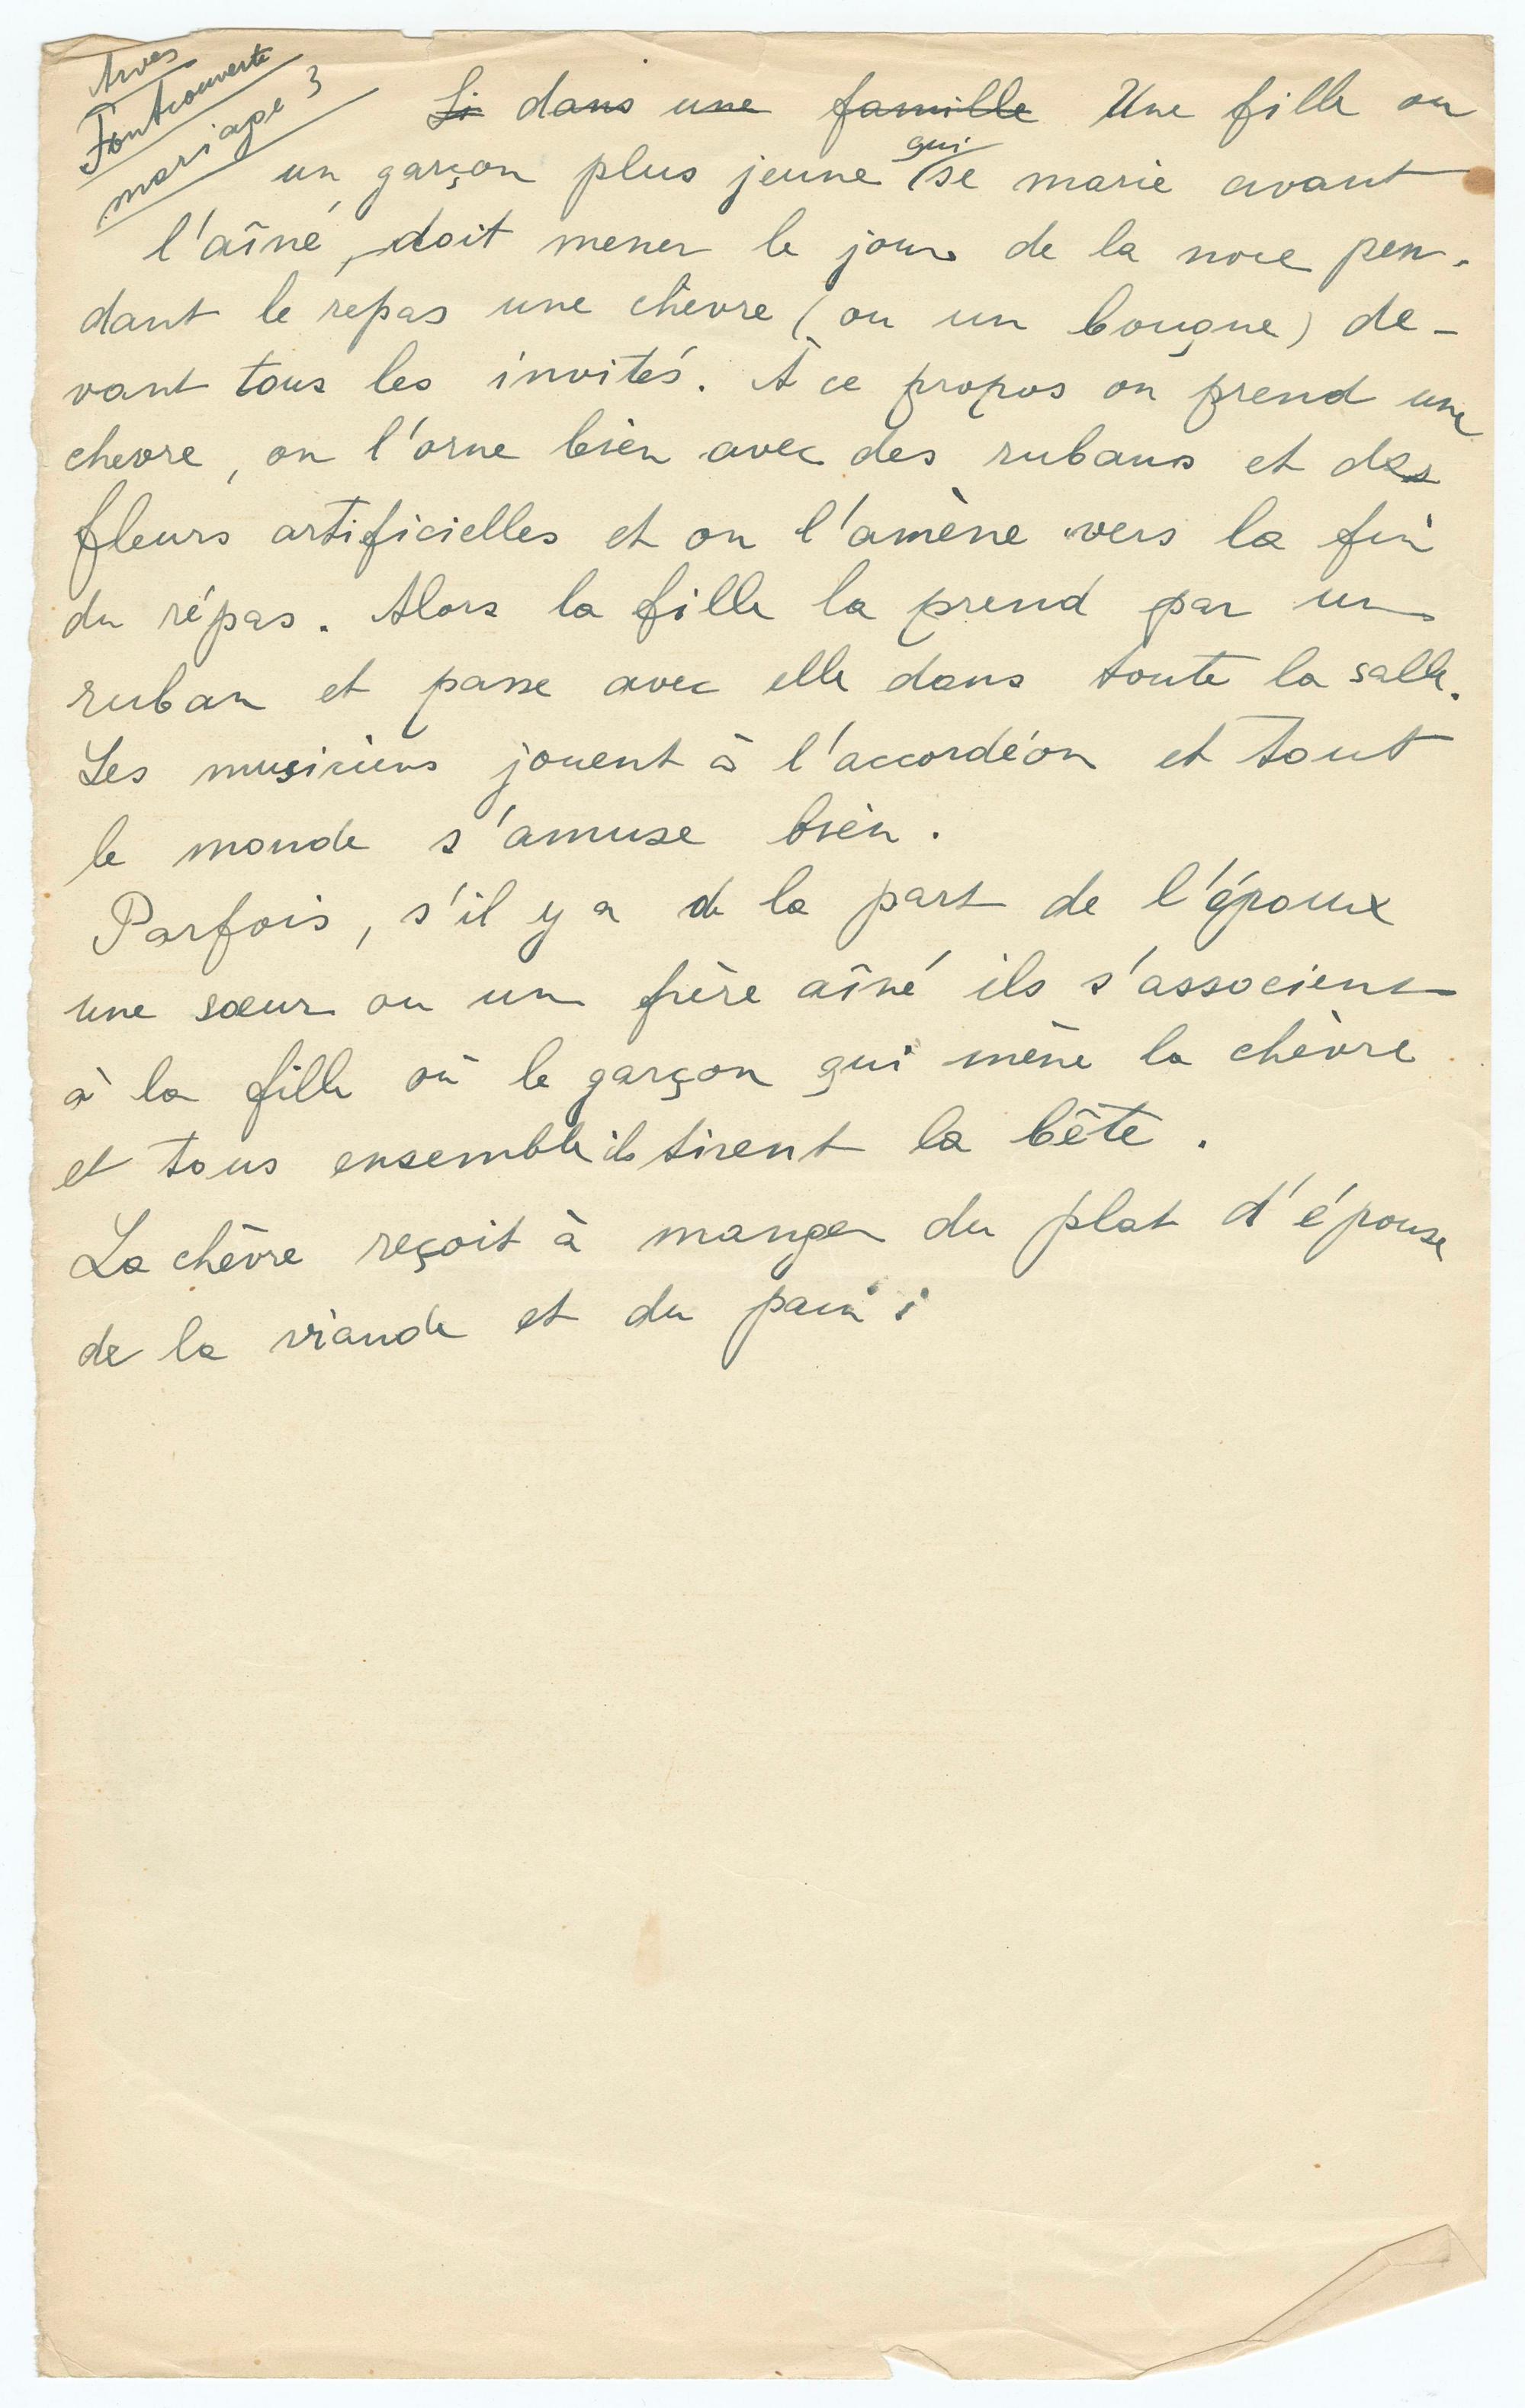 Arves
Fontcouverte
mariage 3
Si dans une famille Une fille ou
un garçon plus jeune qui se marie avant
l'aîné, doit mener le jour de la noce pen-
dant le repas une chèvre (ou un bouque) de-
vant tous les invités. À ce propos on prend une
chevre, on l'orne bien avec des rubans et des
fleurs artificielles et on l'amène vers la fin
du répas. Alors la fille la prend par un
ruban et passe avec elle dans toute la salle.
Les musiciens jouent à l'accordéon et tout
le monde s'amuse bien.
Parfois, s'il y a de la part de l'époux
une sœur ou un frère aîné ils s'associent
à la fille où le garçon qui mène la chèvre
et tous ensemble ils tirent la bête.
La chèvre reçoit à manger du plat d'épouse
de la viande et du pain;